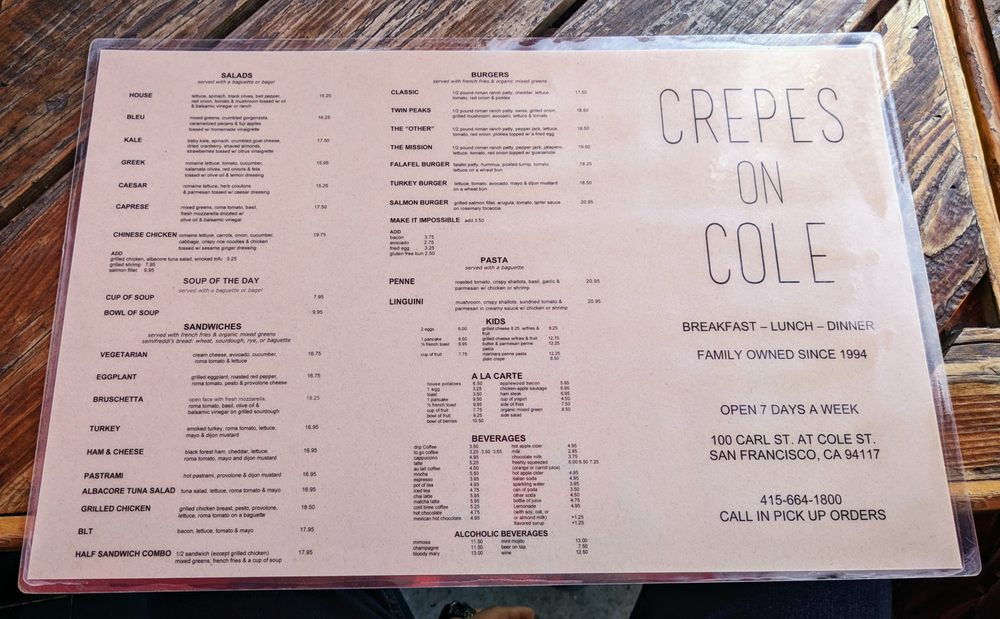 SALADS
served with a baguette or bagel
HOUSE lettuce, spinach, black olives, bell pepper, 15.25
red onion, tomato & mushroom tossed w/ oil
& balsamic vinegar or ranch
BLEU mixed greens, crumbled gorgonzola, 16.25
caramelized pecans & fuji apples
tossed w/ homemade vinaigrette
KALE baby kale, spinach, crumbled goat cheese, 17.50
dried cranberry, shaved almonds,
strawberries tossed w/ citrus vinaigrette
GREEK romaine lettuce, tomato, cucumber, 15.95
kalamata olives, red onions & feta
tossed w/ olive oil & lemon dressing
CAESAR romaine lettuce, herb croutons 15.25
& parmesan tossed w/ caesar dressing
CAPRESE mixed greens, roma tomato, basil, 17.50
fresh mozzarella drizzled w/
olive oil & balsamic vinegar
CHINESE CHICKEN romaine lettuce, carrots, onion, cucumber, 19.75
cabbage, crispy rice noodles & chicken
tossed w/ sesame ginger dressing
ADD
grilled chicken, albacore tuna salad, smoked tofu 5.25
grilled shrimp 7.95
salmon fillet 9.95
SOUP OF THE DAY
served with a baguette or bagel
CUP OF SOUP 7.95
BOWL OF SOUP 9.95
SANDWICHES
served with french fries & organic mixed greens
semifreddi's bread: wheat, sourdough, rye, or baguette
VEGETARIAN cream cheese, avocado, cucumber, 16.75
roma tomato & lettuce
EGGPLANT grilled eggplant, roasted red pepper, 16.75
roma tomato, pesto & provolone cheese
BRUSCHETTA open face with fresh mozzarella, 18.25
roma tomato, basil, olive oil &
balsamic vinegar on grilled sourdough
TURKEY smoked turkey, roma tomato, lettuce, 16.95
mayo & dijon mustard
HAM & CHEESE black forest ham, cheddar, lettuce, 16.95
roma tomato, mayo and dijon mustard
PASTRAMI hot pastrami, provolone & dijon mustard 16.95
ALBACORE TUNA SALAD tuna salad, lettuce, roma tomato & mayo 16.95
GRILLED CHICKEN grilled chicken breast, pesto, provolone, 18.50
lettuce, roma tomato on a baguette
BLT bacon, lettuce, tomato & mayo 17.95
HALF SANDWICH COMBO 1/2 sandwich (except grilled chicken) 17.95
mixed greens, french fries & a cup of soup
BURGERS
served with french fries & organic mixed greens
CLASSIC 1/2 pound niman ranch patty, cheddar, lettuce, 17.50
tomato, red onion & pickles
TWIN PEAKS 1/2 pound niman ranch patty, swiss, grilled onion, 18.50
mushroom, avocado, lettuce & tomato
THE "OTHER" 1/2 pound niman ranch patty, pepper jack, lettuce, 18.50
tomato, red onion, pickles topped w/ a fried egg
THE MISSION 1/2 pound niman ranch patty, pepper jack, jalapeno, 19.50
lettuce, tomato, red onion topped w/ guacamole
FALAFEL BURGER falafel patty, hummus, pickled turnip, tomato, 18.25
lettuce on a wheat bun
TURKEY BURGER lettuce, tomato, avocado, mayo & dijon mustard 18.50
on a wheat bun
SALMON BURGER grilled salmon fillet, arugula, tomato, tarter sauce 20.95
on rosemary focaccia
MAKE IT IMPOSSIBLE add 3.50
ADD
bacon 3.75
avocado 2.75
fried egg 3.25
gluten free bun 2.50
PASTA
served with a baguette
PENNE roasted tomato, crispy shallots, basil, garlic & 20.95
parmesan w/ chicken or shrimp
LINGUINI mushroom, crispy shallots, sundried tomato & 20.95
parmesan in creamy sauce w/ chicken or shrimp
KIDS
2 eggs 6.00 grilled cheese 8.25 w/fries & 8.25
fruit
1 pancake 9.50 grilled cheese w/fries & fruit 12.75
½ french toast 9.95 butter & parmesan penne 12.25
pasta
cup of fruit 7.75 marinara penne pasta 12.25
plain crepe 8.50
A LA CARTE
house potatoes 6.50 applewood bacon 5.95
1 egg 3.25 chicken-apple sausage 6.95
toast 3.50 ham steak 6.95
1 pancake 9.50 cup of yogurt 4.50
½ french toast 9.95 side of fries 7.50
cup of fruit 7.75 organic mixed green 9.50
bowl of fruit 9.25 side salad
bowl of berries 10.50
BEVERAGES
drip Coffee 3.50 hot apple cider 4.95
to go coffee 3.25 3.50 3.65 milk 2.95
cappuccino 4.95 chocolate milk 3.75
latte 5.25 freshly squeezed 6.00 6.50 7.25
au lait coffee 4.50 (orange or carrot juice)
mocha 5.50 hot apple cider 4.95
espresso 3.95 italian soda 4.95
pot of tea 4.95 sparkling water 3.95
iced tea 4.75 can of soda 3.50
chai latte 5.95 other soda 4.50
matcha latte 5.95 bottle of juice 4.75
cold brew coffee 5.25 Lemonade 4.95
hot chocolate 4.75 (with soy, oat, or
mexican hot chocolate 4.95 or almond milk) +1.25
flavored syrup +1.25
ALCOHOLIC BEVERAGES
mimosa 11.50 mint mojito 13.00
champagne 11.50 beer on tap 7.50
bloody mary 13.00 wine 12.50
CREPES
ON
COLE
BREAKFAST – LUNCH – DINNER
FAMILY OWNED SINCE 1994
OPEN 7 DAYS A WEEK
100 CARL ST. AT COLE ST.
SAN FRANCISCO, CA 94117
415-664-1800
CALL IN PICK UP ORDERS